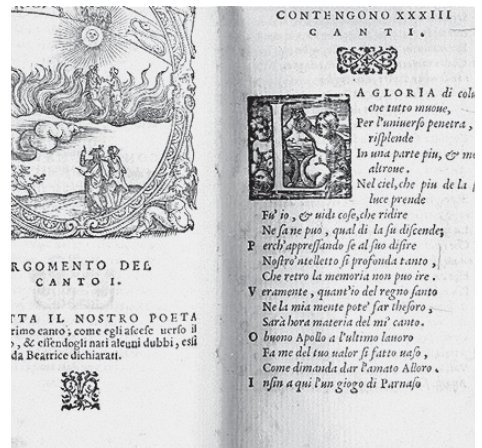 RGOMENTO DEL
CANTO I.
TTA IL NOSTRO POETA
rimo canto, come egli ascese uerso il
o, & essendogli nati alcuni dubbi, essi
da Beatrice dichiarati.
CONTENGONO XXXIII
CANTI.
LA GLORIA di colu
che tutto muoue,
Per l'uniuerso penetra,
risplende
In una parte piu, & me
altroue.
Nel ciel, che piu de la
luce prende
Fu' io, & uidi cose, che ridire
Ne sa ne può, qual di la su discende;
Perch'appressando se al suo disire
Nostro'ntelletto si profonda tanto,
Che retro la memoria non puo ire.
Veramente, quant'io del regno santo
Ne la mia mente pote' far thesoro,
Sarà hora materia del mi' canto.
O buono Apollo a l'ultimo lauoro
Fa me del tuo ualor si fatto uaso,
Come dimanda dar l'amato Alloro.
Insin a qui l'un giogo di Parnaso